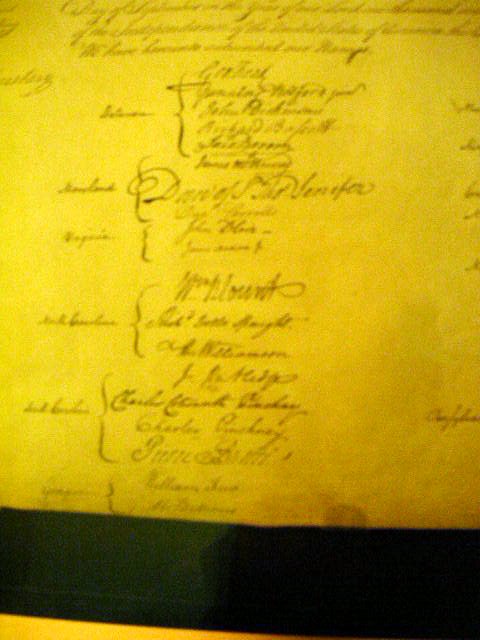 of the Independance of the United States of America the
We have hereunto subscribed our Names,
Delaware
Geo: Read
Gunning Bedford jun
John Dickinson
Richard Bassett
Jaco: Broom
Maryland
James McHenry
Dan of St Thos Jenifer
Danl Carroll
Virginia
John Blair—
James Madison Jr
North Carolina
Wm Blount
Richd Dobbs Spaight.
Hu Williamson
South Carolina
J. Rutledge
Charles Cotesworth Pinckney
Charles Pinckney
Pierce Butler.
Georgia
William Few
Abr Baldwin